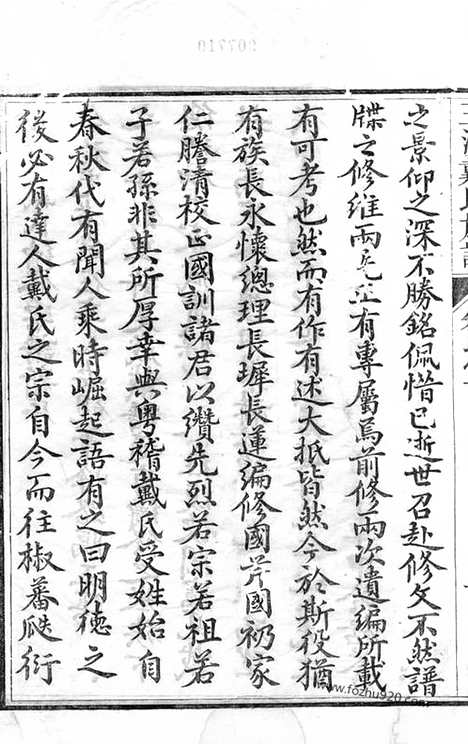 之景仰之深不勝銘佩惜已逝世召赴修文不然譜
牒之修維兩先生有專屬焉前修兩次遺編所載
有可考也然而有作有述大抵皆然今於斯役猶
有族長永懷總理長墀長蓮編修國芹國礽家
仁謄清校正國訓諸君以纘先烈若宗若祖若
子若孫非其所厚幸與粵稽戴氏受姓始自
春秋代有聞人乘時崛起語有之曰明德之
後必有達人戴氏之宗自今而往椒蕃瓞衍
www.fozhu920.com
207719